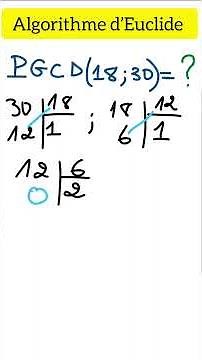 Algorithme d'Euclide
PGCD(18;30)= ?
30 | 18 ; 18 | 12
12 | 1 6 | 1
12 | 6
0 | 2